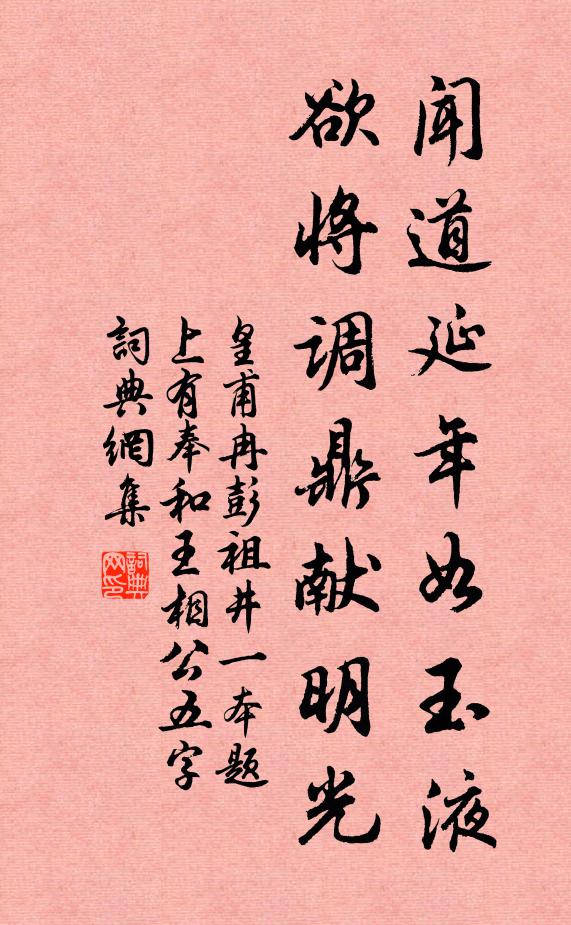 闻道延年如玉液
欲将调鼎献明光
皇甫冉彭祖井一本题
上有奉和王相公五字
詞典網集
詞典网印